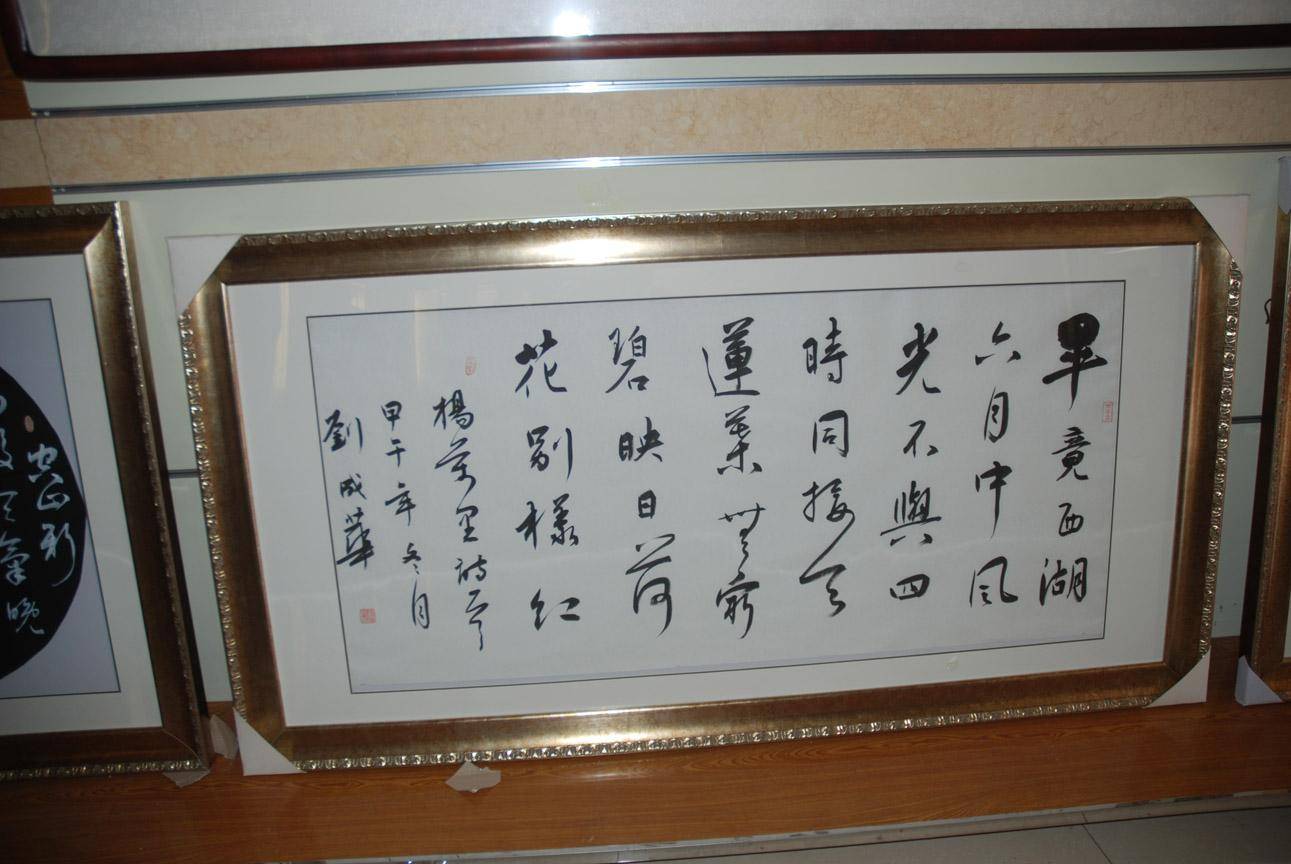 畢竟西湖
六月中風
光不與四
時同接天
蓮葉無窮
碧映日荷
花別樣紅
楊萬里詩一首
甲午年冬月
劉成華
空山新
天氣晚